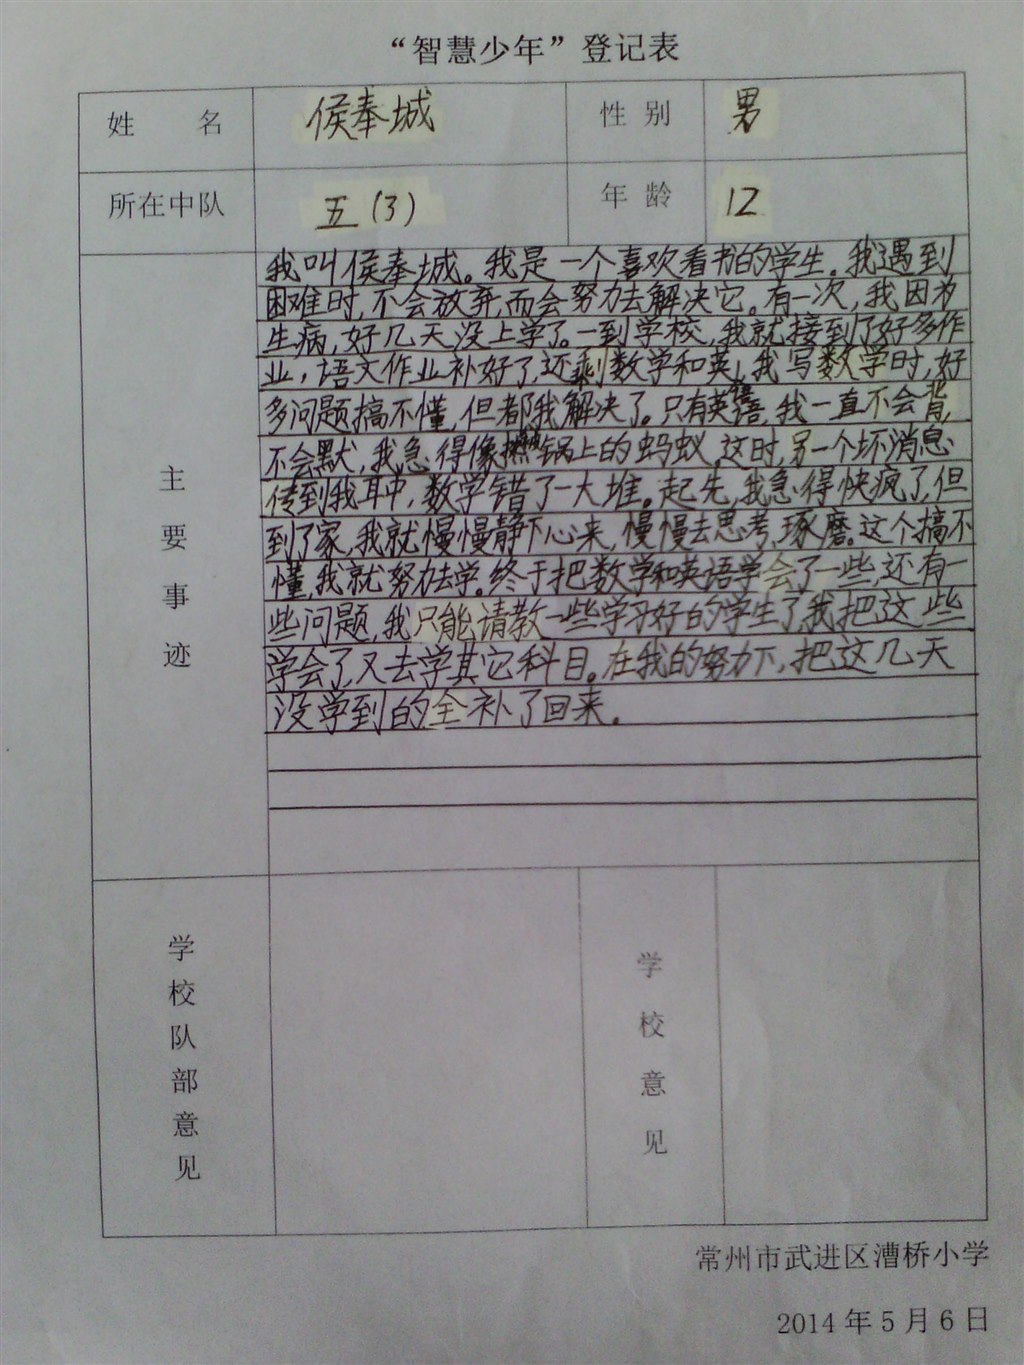 “智慧少年”登记表
姓 名 侯奉城 性 别 男
所在中队 五(3) 年 龄 12
主要事迹
我叫侯奉城。我是一个喜欢看书的学生。我遇到
困难时,不会放弃,而会努力去解决它。有一次,我因为
生病,好几天没上学了。一到学校,我就接到了好多作
业,语文作业补好了,还剩数学和英,我写数学时,好
多问题搞不懂,但都我解决了。只有英语,我一直不会背,
不会默,我急得像热锅上的蚂蚁,这时,另一个坏消息
传到我耳中,数学错了一大堆。起先,我急得快疯了,但
到了家,我就慢慢静下心来,慢慢去思考,琢磨。这个搞不
懂,我就努力去学。终于把数学和英语学会了一些,还有一
些问题,我只能请教一些学习好的学生了,我把这些
学会了,又去学其它科目。在我的努力下,把这几天
没学到的全补了回来。
学校队部意见
学校意见
常州市武进区漕桥小学
2014年5月6日